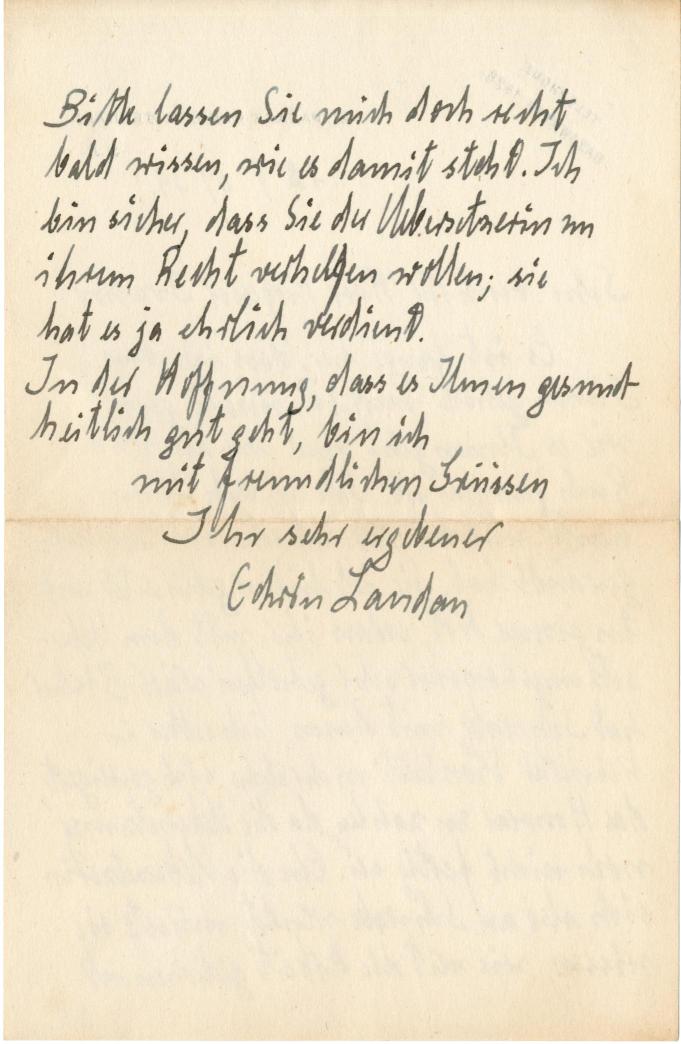 Bitte lassen Sie mich doch recht
bald wissen, wie es damit steht. Ich
bin sicher, dass Sie der Uebersetzerin zu
ihrem Recht verhelfen wollen; sie
hat es ja ehrlich verdient.
In der Hoffnung, dass es Ihnen gesund
heitlich gut geht, bin ich
mit freundlichen Grüssen
Ihr sehr ergebener
Edwin Landau